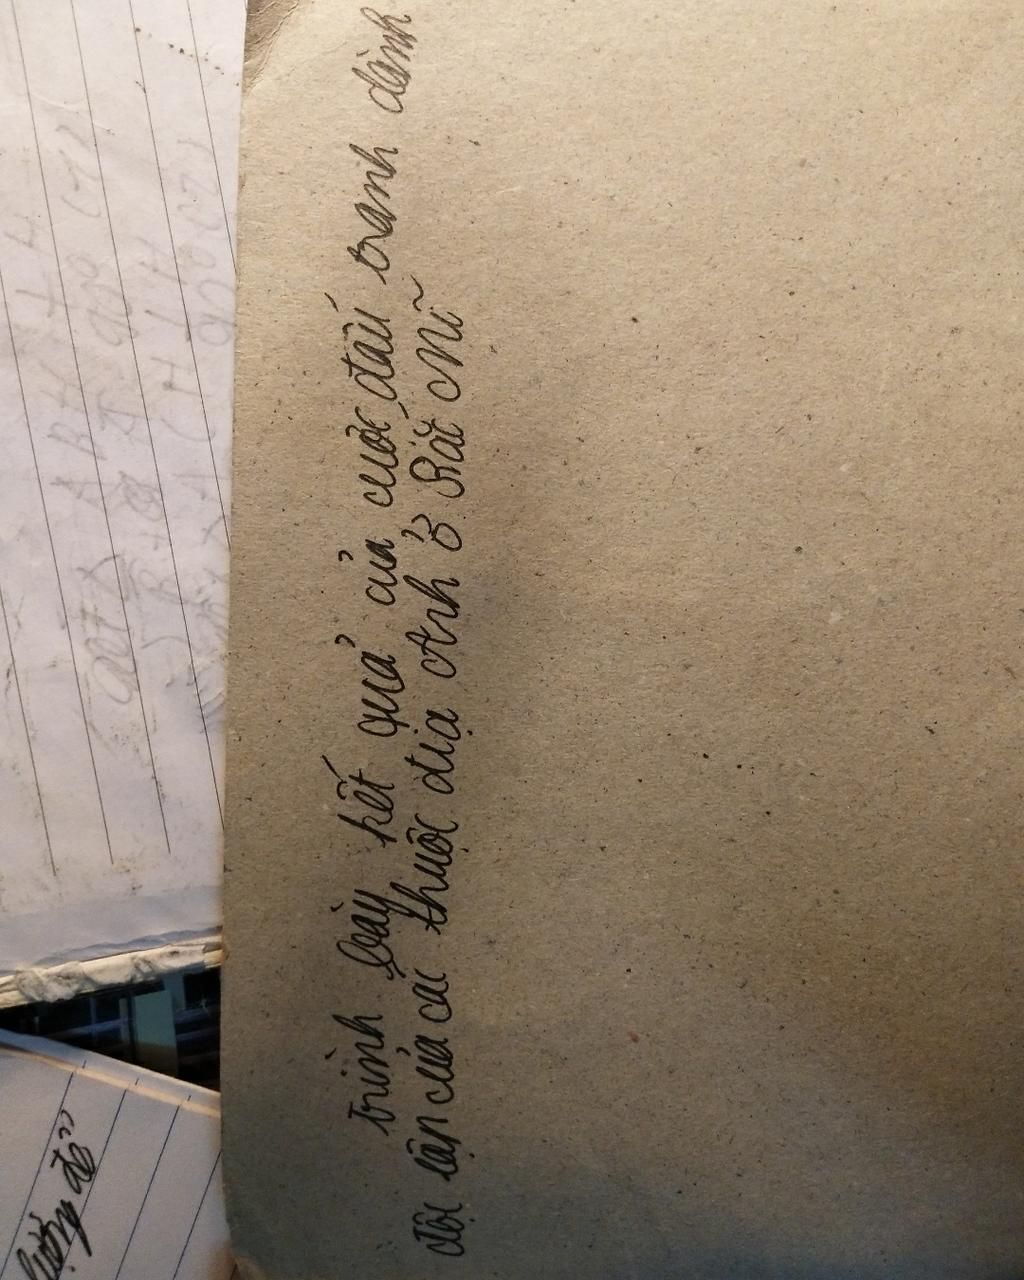 trình bày kết quả của cuộc đấu tranh dành
độc lập của các thuộc địa Anh ở Bắc Mĩ